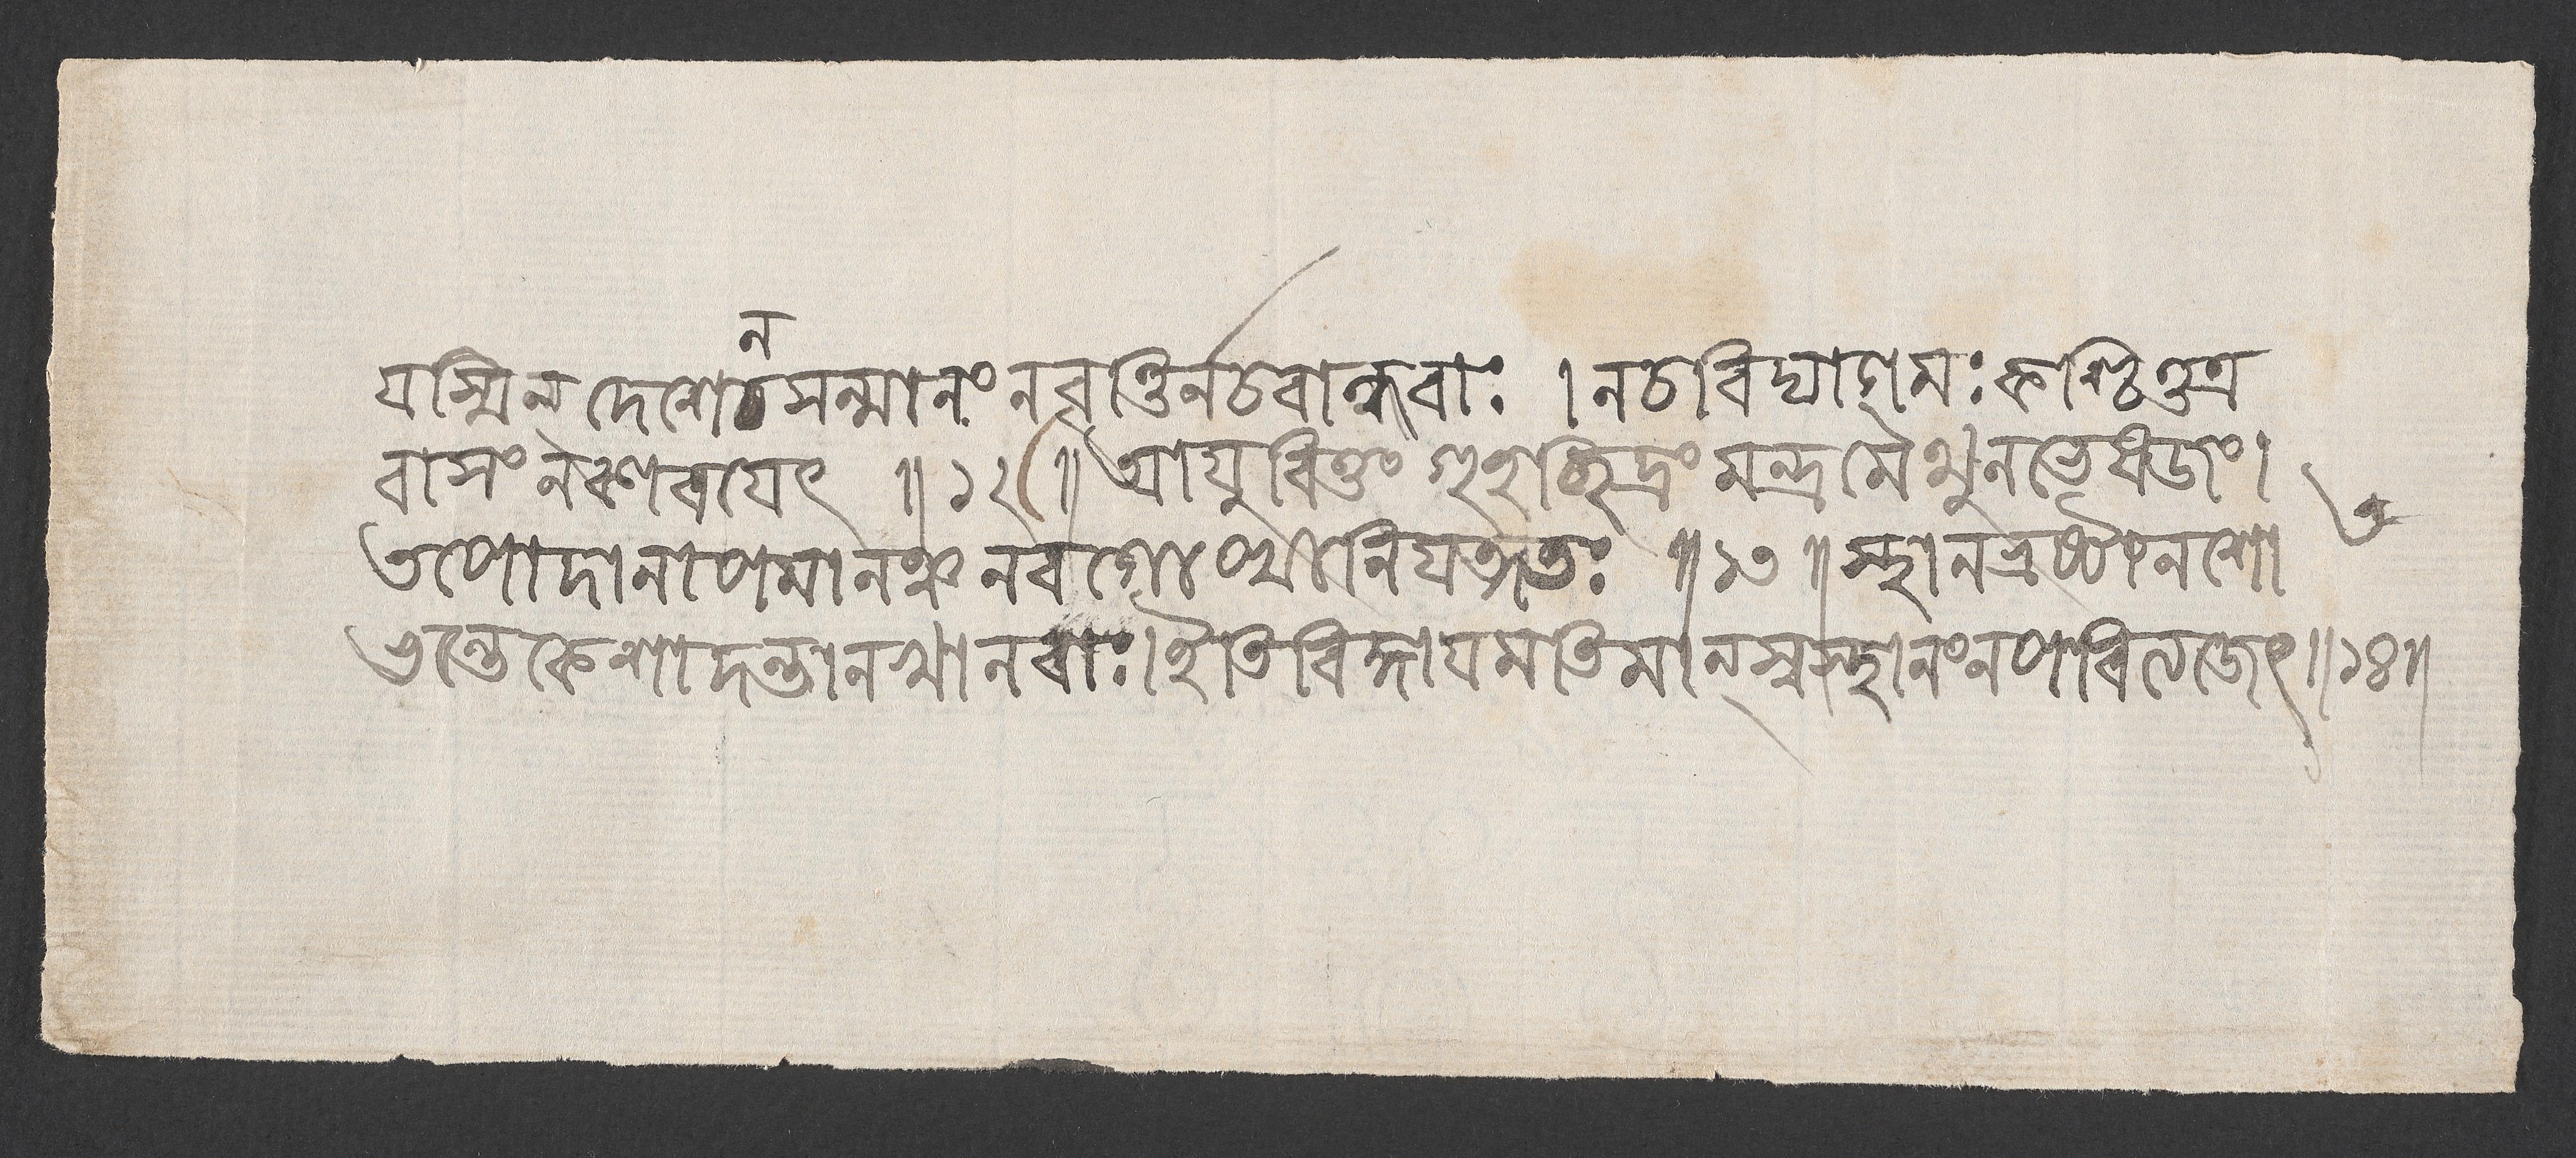 ন
যস্মিন্দেশেনসন্মানং নবৃত্তির্নচবান্ধবাঃ । নচবিদ্যাগমঃ কশ্চিত্তত্র
বাসং নকারযেৎ ॥১২॥ আযুর্বিত্তং গৃহচ্ছিদ্রং মন্ত্রমৈথুনভেষজং।
তপোদানাপমানঞ্চ নবগোপ্যানিযত্নতঃ ॥১৩॥ স্থানভ্রষ্টানশো
ভন্তেকেশাদন্তানখানরাঃ। ইতিবিজ্ঞাযমতিমান্স্বস্থানংনপরিত্যজেৎ॥১৪॥